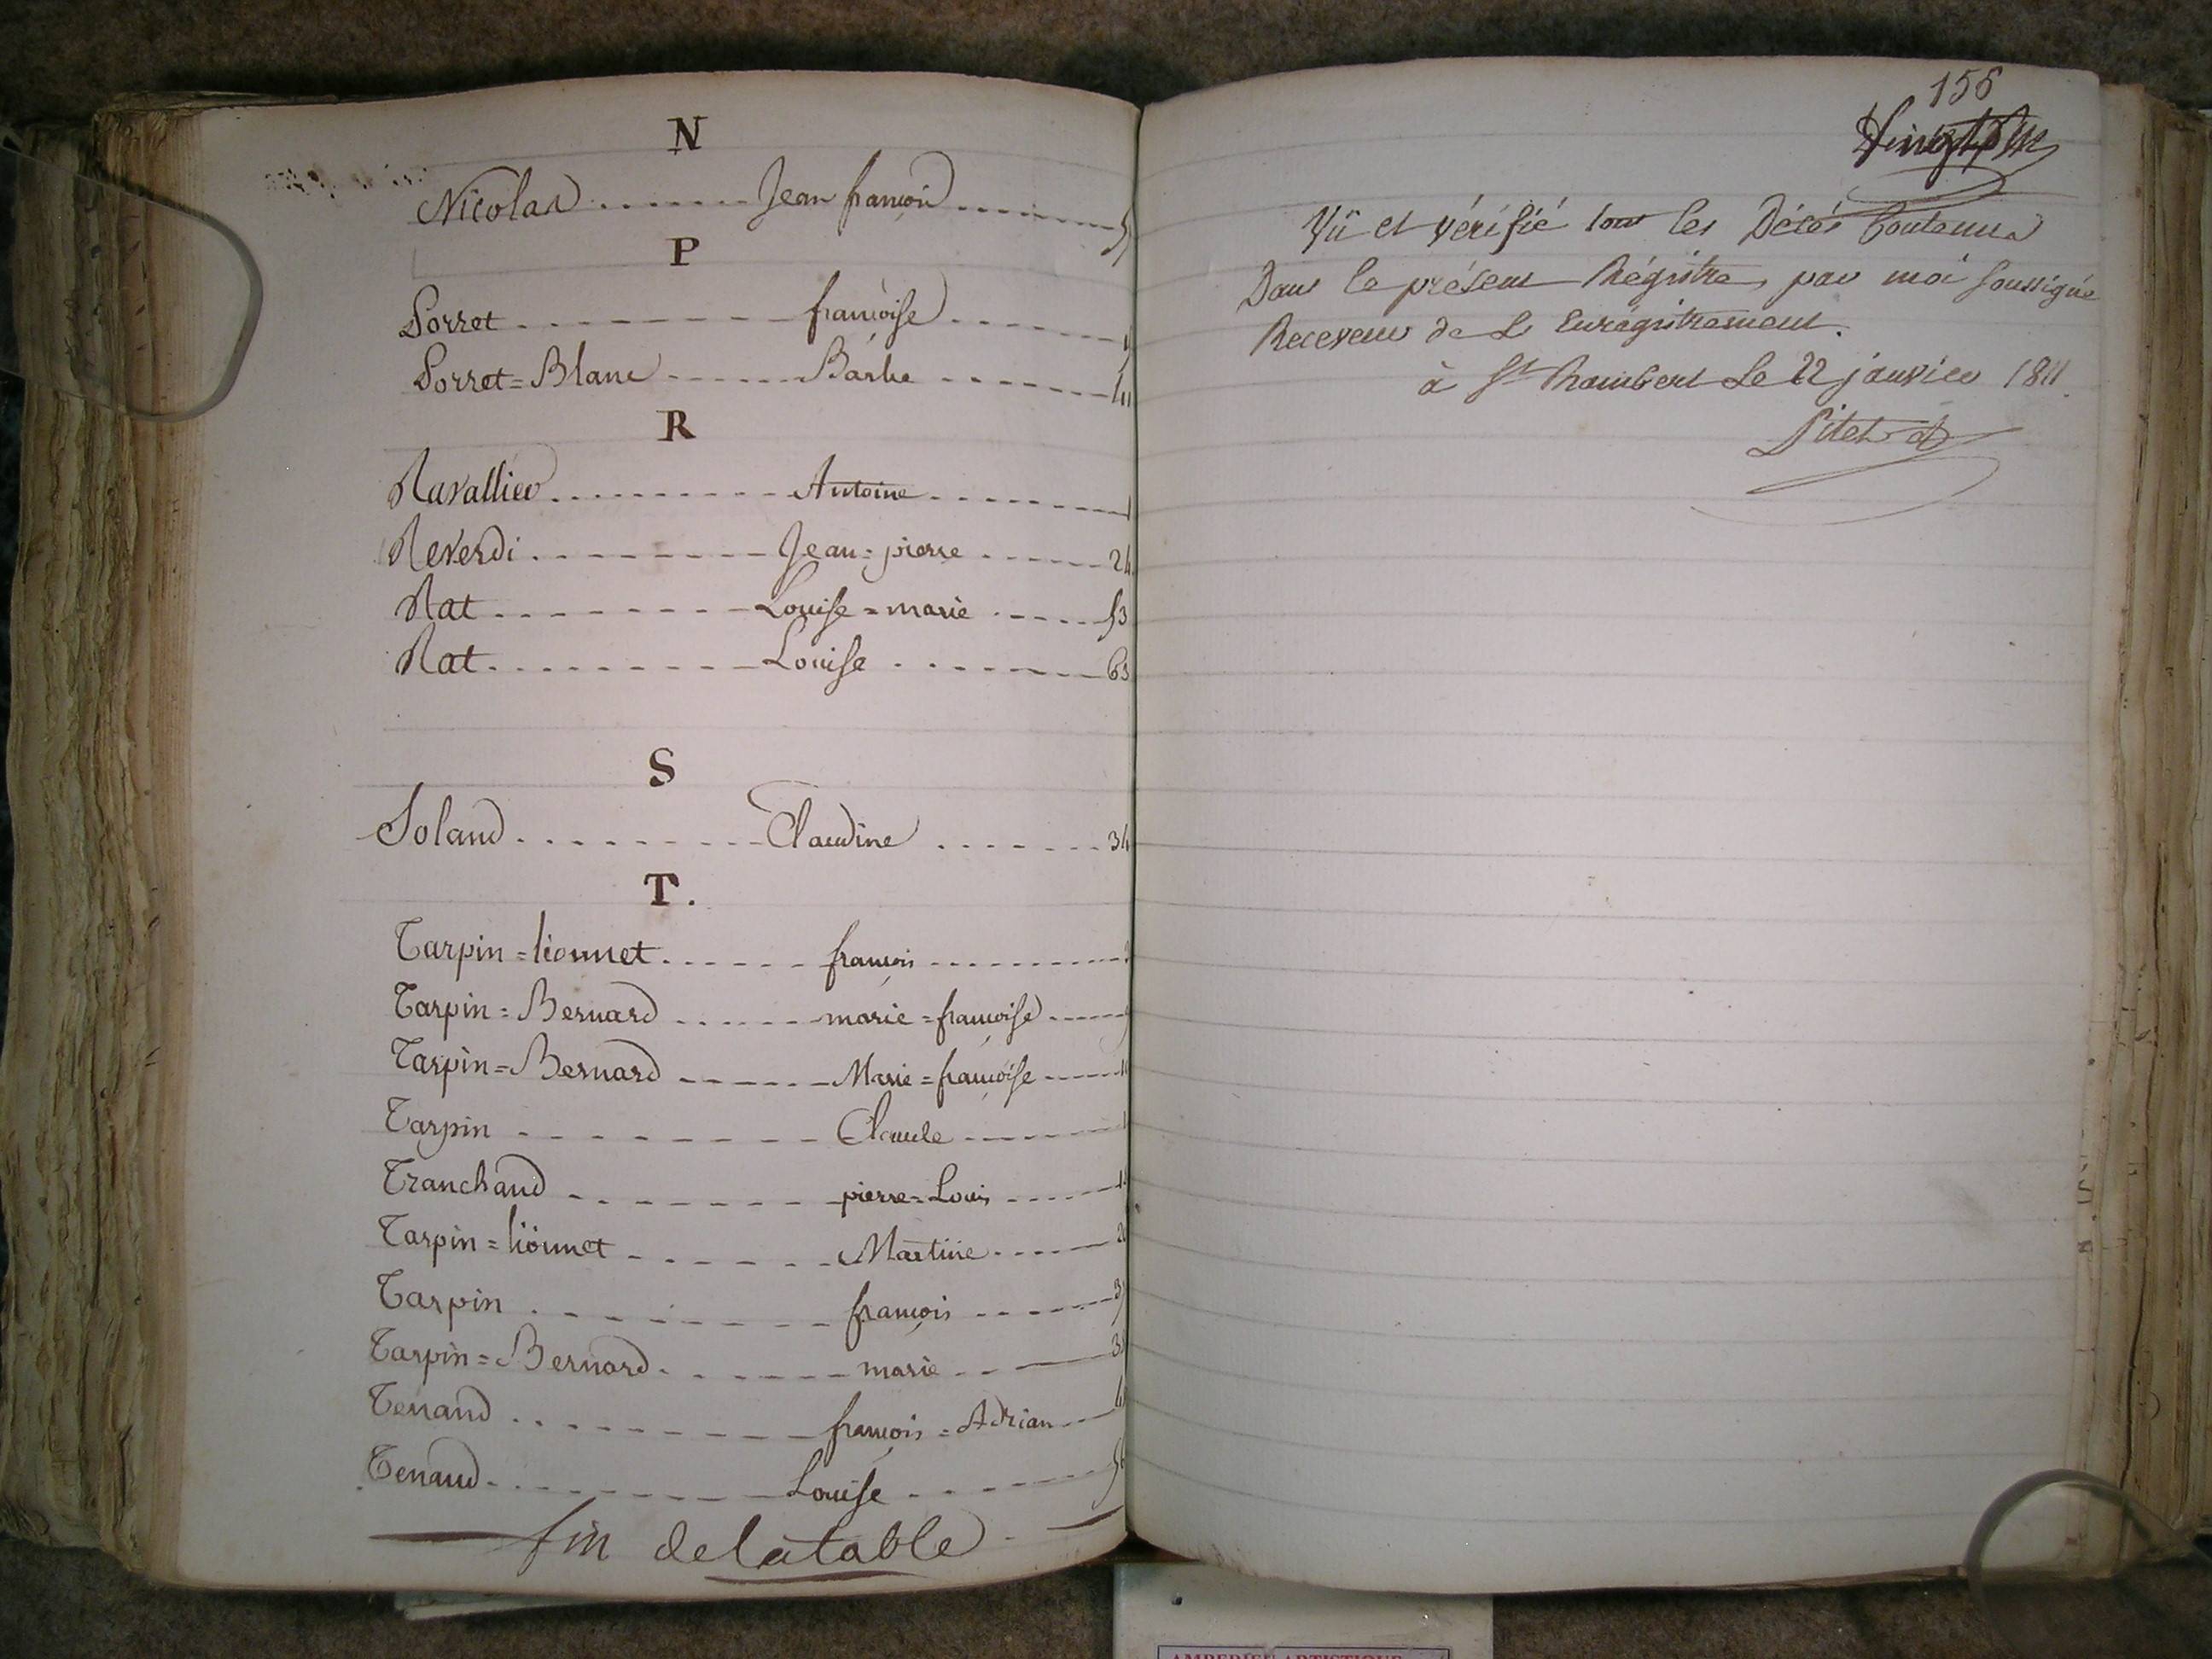 N
Nicolas ....... Jean françois ....... 5
P
Porret ........ françoise .......
Porret=Blanc ...... Barbe .......
R
Ravallier .......... Antoine .......
Reverdi ........ Jean=pierre ...... 24
Rat ........ Louise=marie ..... 53
Rat ......... Louise ....... 63
S
Soland ......... Claudine ....... 34
T.
Tarpin=lionnet ...... françois .........
Tarpin=Bernard ...... marie=françoise .....
Tarpin=Bernard ...... Marie=françoise .....
Tarpin ......... Claude ......
Tranchand ....... pierre=Louis .....
Tarpin=lionnet ...... Martine .....
Tarpin ........ françois ......
Tarpin=Bernard ....... marie ...
Tenand ......... françois=Adrian ...
Tenand ......... Louise ......
fin de la table
156
Vû et vérifié tous les Décès Contenus
Dans le présent Régistre, par moi soussigné
Receveur de L'Enregistrement.
à St Rambert Le 22 janvier 1811.
Pitet
AMBERIEU ARTISTIQUE